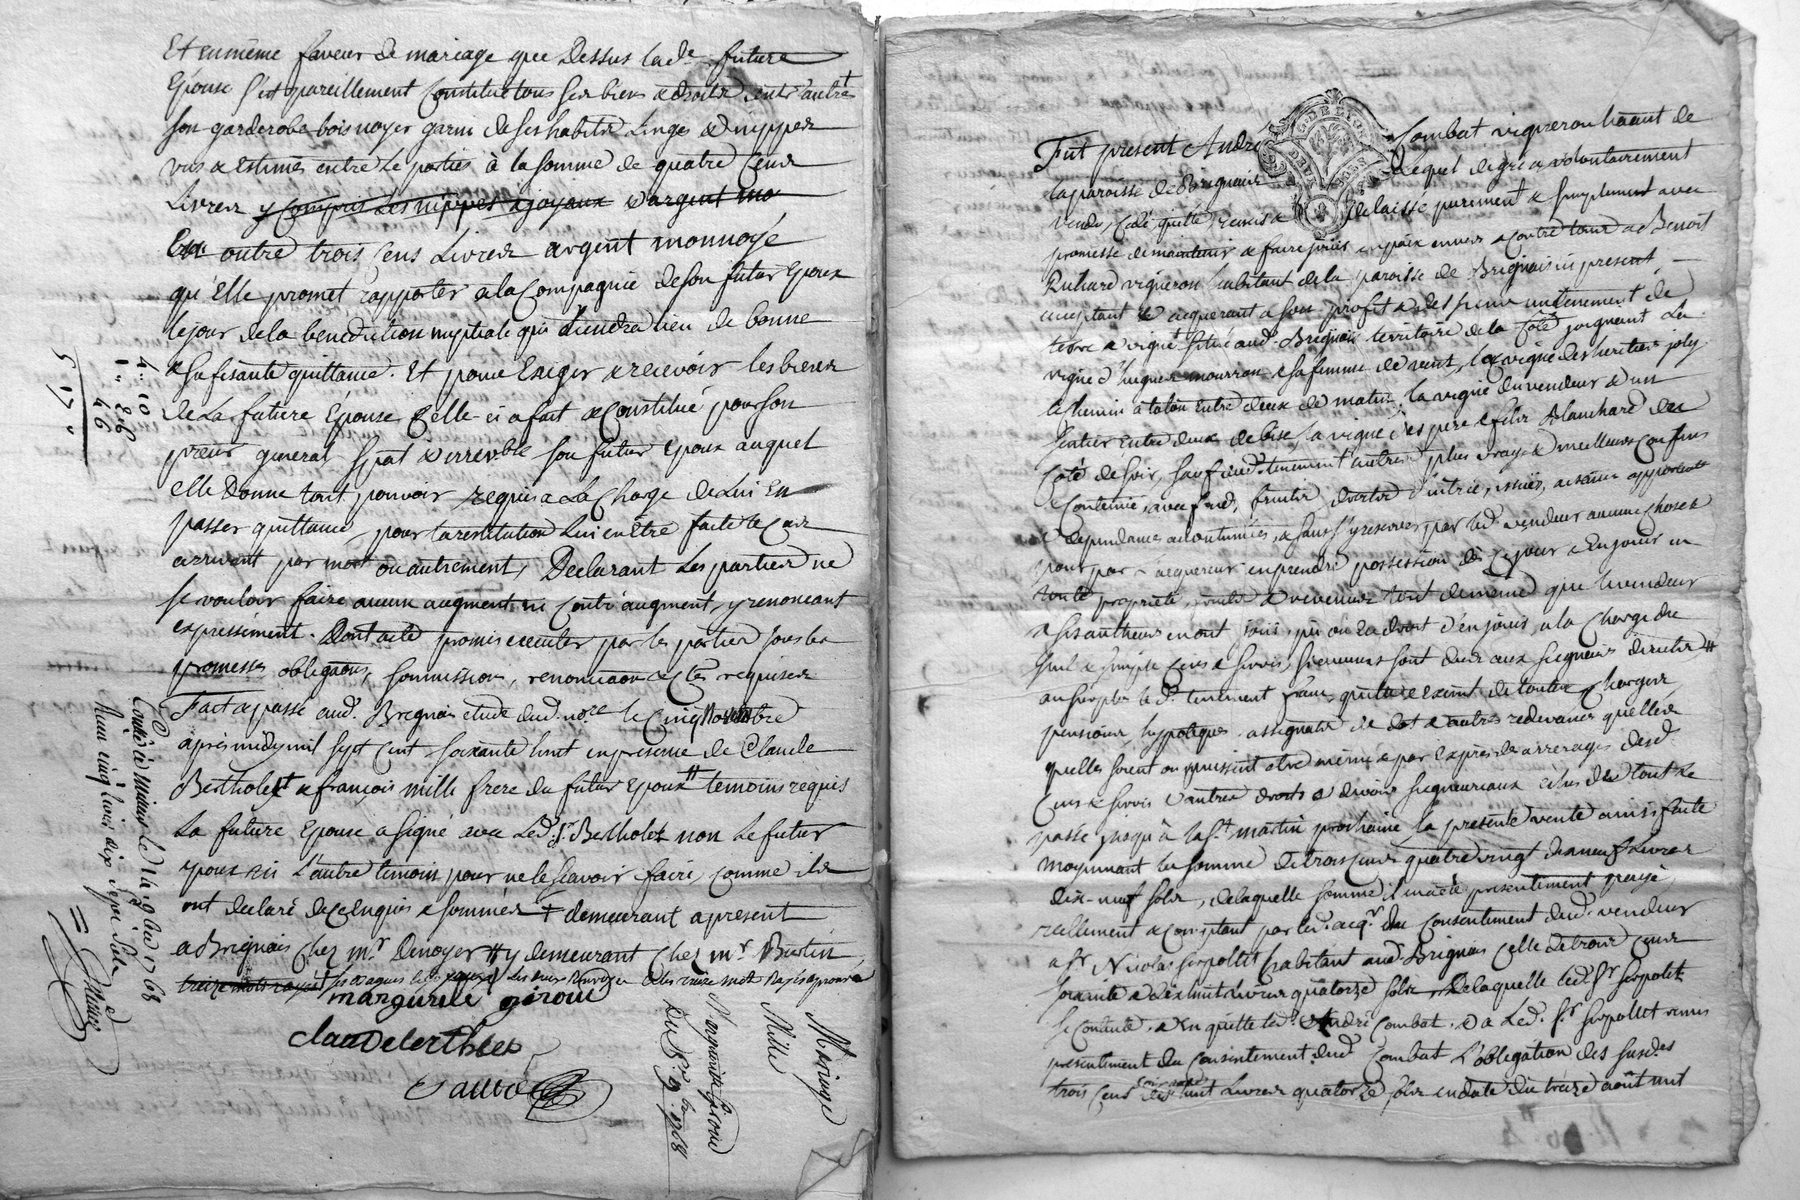 Et en même faveur de mariage que dessus lad.e future
Epouse s'est pareillement Constitué tous ses biens & droits entr'autres
son garderobe bois noyer garni de ses habits Linges & nippes
vus & estimés entre les parties à la somme de quatre Cens
Livres y compris les nippes & joyaux d'argent mo
En outre trois Cens Livres argent monnoyé
qu'Elle promet rapporter à la Compagnie de son futur Epoux
le jour de la benediction nuptiale qui tiendra lieu de bonne
& sufisante quittance. Et pour Exiger & recevoir les biens
de la future Epouse Celle-ci a fait & Constitué pour son
preur general Spāl & irrevble son futur Epoux auquel
elle Donne tout pouvoir requis a La Charge de Lui En
passer quittance pour la restitution Lui en être faite le Cas
arrivant par mort ou autrement, Declarant Les parties ne
se vouloir faire aucun augment ni Contr'augment, y renoncant
expressément. Dont acte promis executer par les parties sous les
promesses obligaōns, soumissions, renonciaōns & Clēs requises
Fait & passé aud. Brignais etude dud. no.re le Cinq Novembre
après midy mil Sept Cent Soixante huit en presence de Claude
Bertholet & françois mille frere du futur Epoux # temoins requis
La future Epouse a signé avec Led. Sr. Bertholet non Le futur
Epoux ni l'autre temoin pour ne le sçavoir faire, comme ils
ont declaré de ce Enquis & sommés + demeurant a present
a Brignais Chez m.r Denoyer # y demeurant Chez m.r Burtin
treize mots rayés
margueritte giroud
claude berthlet
Sauvo
4 .. 10
1 .. 86
46
5 17
Controllé à le 14 9bre 1768
Reçu cinq livres dix sept sols
Mariage
Mille
& Margueritte Giroud
Du 5e 9bre 1768
Fut present André Combat vigneron haānt de
la paroisse de Brignais Lequel de gré & volontairement
vendu, Cedé, quitté, remis & Delaissé purement & simplement avec
promesse de maintenir & faire jouir en paix envers & Contre tous a Benoit
Richard vigneron habitant de la paroisse de Brignais ici present
acceptant & acquerant a son profit & des siens un tenement de
terre & vigne situé aud. Brignais territoire de la Côte joignant La
vigne d'hugues mourron & sa femme de vent, la vigne des heritiers joly
le chemin à talon Entre deux de matin la vigne du vendeur & un
sentier Entre deux de bise, la vigne des pere & fils Blanchard du
Côté de soir, sauf dud. tenement autres plus vrays & meilleurs Confins
& Contenue, avec fond, fruits, droits d'entrée, issues, aisances appartenances
& dependances accoutumées, & sans s'y reserver par led. vendeur aucune chose &
pour par l'acquereur en prendre possession dès Ce jour & En jouir en
toute propriété, fruits & revenus tout de meme que le vendeur
& ses autheurs en ont joui, pû ou eu droit d'en jouir, a la Charge du
seul & simple Cens & servis, si aucuns sont dus aux seigneurs directs #
au surplus led. tenement franc, quitte & exemt de toutes Charges
pensions, hypoteques, assignats de dot & autres redevances quelles
quelles soient ou puissent etre même & par Exprès des arrerages desd.
Cens & servis & autres droits & devoirs seigneuriaux echus de tout le
passé jusqu'à la St. martin prochaine La presente vente ainsi faite
moyennant la somme de trois Cens quatre vingt dix neuf Livres
dix-neuf sols, de laquelle somme il en a été presentement payé,
reellement & Comptant par led. acq.r du Consentement dud. vendeur
a Sr. Nicolas serpollet habitant aud. Brignais Celle de trois Cens
soixante & dix huit Livres quatorze sols, de laquelle led. Sr. serpollet
se Contente, & En quitte led. André Combat. & a Led. Sr. serpollet remis
presentement du Consentement dud. Combat L'obligation des susd.es
trois Cens huit Livres quatorze sols en date du treize août mil